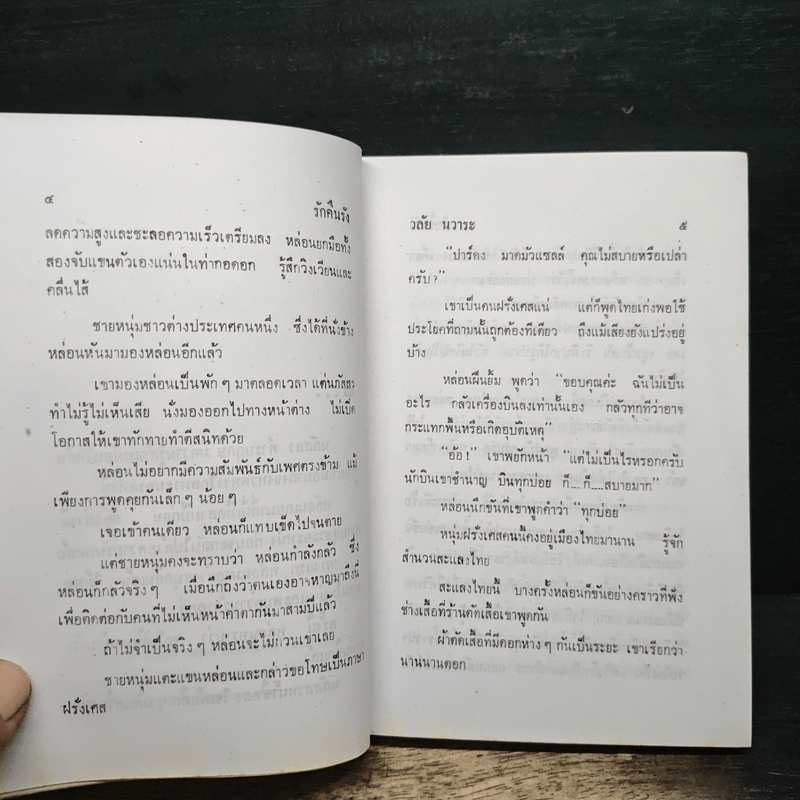 ๔
รักคืนรัง
ลดความสูงและชะลอความเร็วเตรียมลง หล่อนยกมือทั้ง
สองจับแขนตัวเองแน่นในท่ากอดอก รู้สึกวิงเวียนและ
คลื่นไส้
ชายหนุ่มชาวต่างประเทศคนหนึ่ง ซึ่งได้ที่นั่งข้าง
หล่อนหันมามองหล่อนอีกแล้ว
เขามองหล่อนเป็นพัก ๆ มาตลอดเวลา แต่นภัสสร
ทำไม่รู้ไม่เห็นเสีย นั่งมองออกไปทางหน้าต่าง ไม่เปิด
โอกาสให้เขาทักทายทำตีสนิทด้วย
หล่อนไม่อยากมีความสัมพันธ์กับเพศตรงข้าม แม้
เพียงการพูดคุยกันเล็ก ๆ น้อย ๆ
เจอเข้าคนเดียว หล่อนก็แทบเข็ดไปจนตาย
แต่ชายหนุ่มคงจะทราบว่า หล่อนกำลังกลัว ซึ่ง
หล่อนก็กลัวจริง ๆ เมื่อนึกถึงว่าตนเองอาจหาญมาถึงนี่
เพื่อติดต่อกับคนที่ไม่เห็นหน้าค่าตากันมาสามปีแล้ว
ถ้าไม่จำเป็นจริง ๆ หล่อนจะไม่กวนเขาเลย
ชายหนุ่มแตะแขนหล่อนและกล่าวขอโทษเป็นภาษา
ฝรั่งเศส
วลัย นวาระ
๕
“ปาร์ดง มาดมัวแซลล์ คุณไม่สบายหรือเปล่า
ครับ ?”
เขาเป็นคนฝรั่งเศสแน่ แต่ก็พูดไทยเก่งพอใช้
ประโยคที่ถามนั้นถูกต้องทีเดียว ถึงแม้เสียงยังแปร่งอยู่
บ้าง
หล่อนฝืนยิ้ม พูดว่า “ขอบคุณค่ะ ฉันไม่เป็น
อะไร กลัวเครื่องบินลงเท่านั้นเอง กลัวทุกทีว่าอาจ
กระแทกพื้นหรือเกิดอุบัติเหตุ”
“อ้อ !” เขาพยักหน้า “แต่ไม่เป็นไรหรอกครับ
นักบินเขาชำนาญ บินทุกบ่อย ก็...ก็....สบายมาก”
หล่อนนึกขันที่เขาพูดคำว่า “ทุกบ่อย”
หนุ่มฝรั่งเศสคนนี้คงอยู่เมืองไทยมานาน รู้จัก
สำนวนสะแลงไทย
สะแลงไทยนี้ บางครั้งหล่อนก็ขันอย่างคราวที่ฟัง
ช่างเสื้อที่ร้านตัดเสื้อเขาพูดกัน
ผ้าตัดเสื้อที่มีดอกห่าง ๆ กันเป็นระยะ เขาเรียกว่า
นานนานดอก